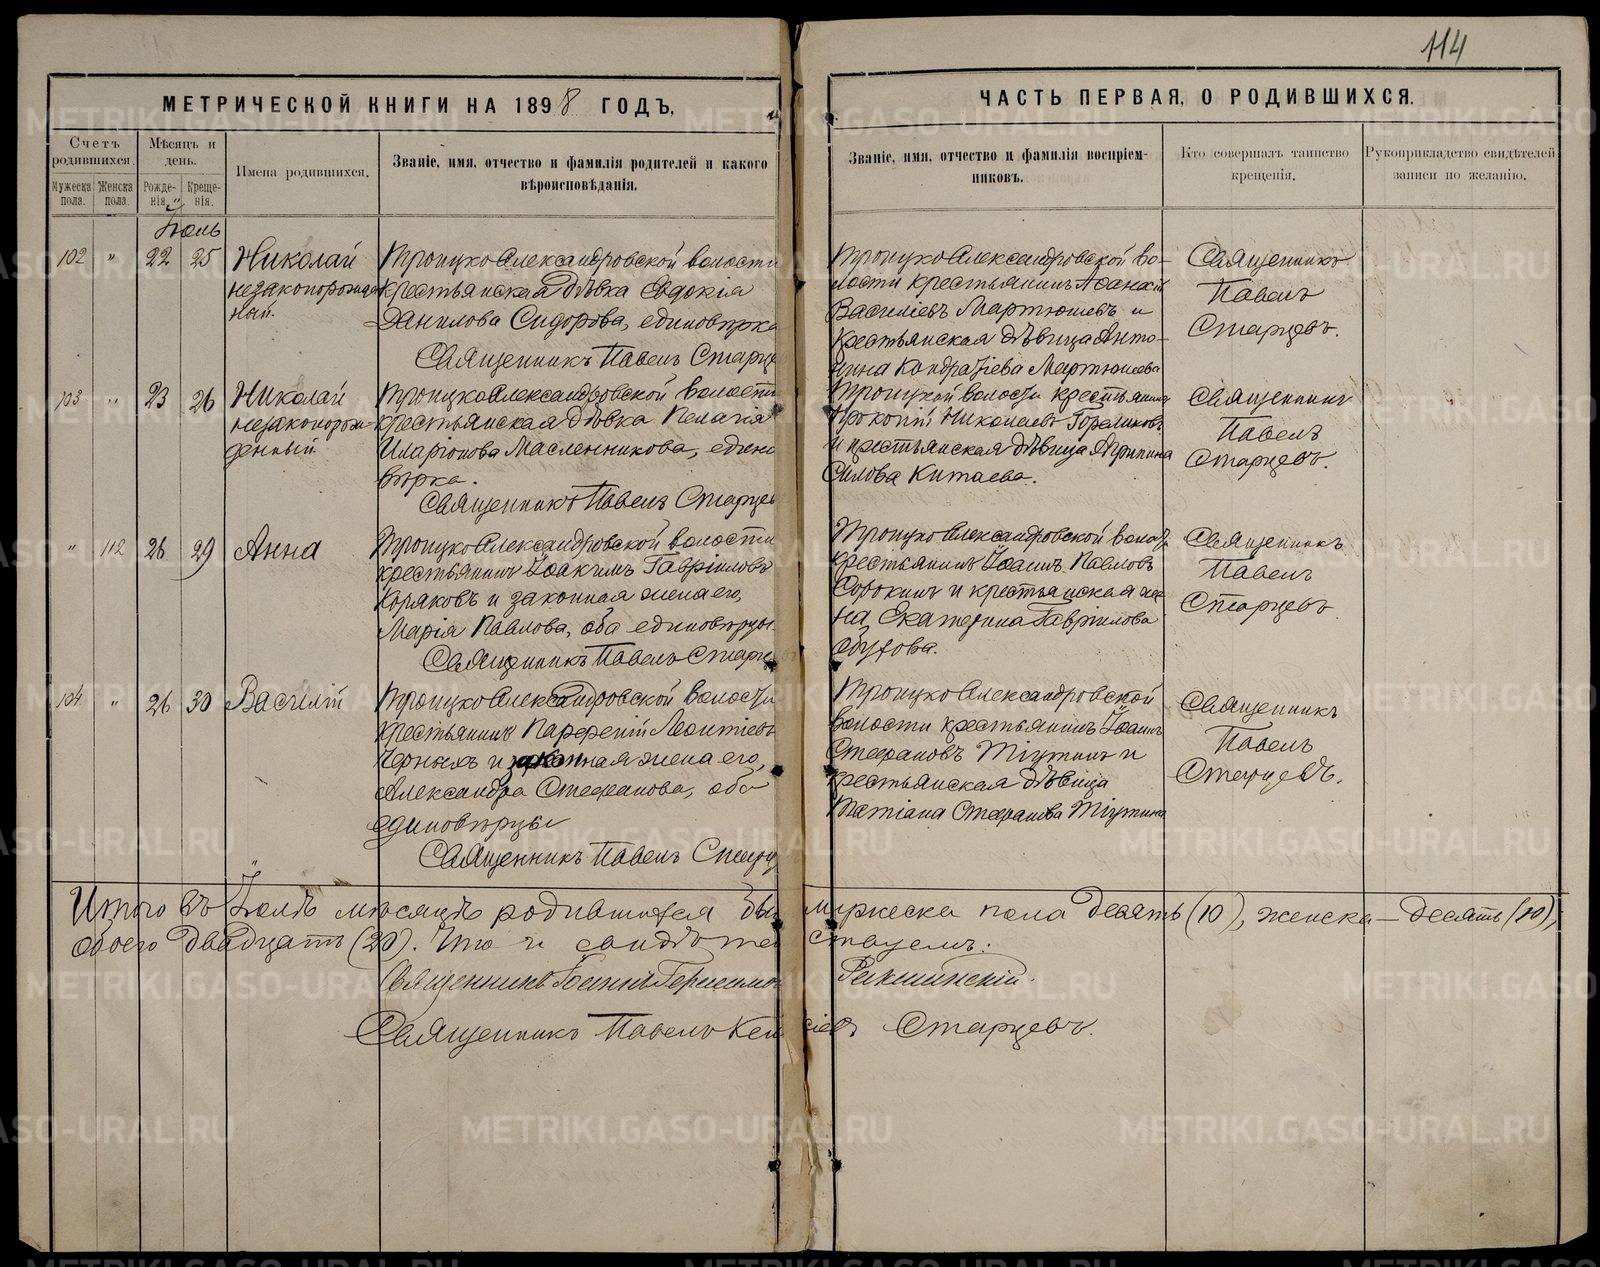 114
МЕТРИЧЕСКОЙ КНИГИ НА 1898 ГОДЪ,
ЧАСТЬ ПЕРВАЯ, О РОДИВШИХСЯ.
Счетъ родившихся.
Мужеска пола.
Женска пола.
Мѣсяцъ и день.
Рожде-нія.
Креще-нія.
Имена родившихся.
Званіе, имя, отчество и фамилія родителей и какого
вѣроисповѣданія.
Званіе, имя, отчество и фамилія воспріем-
никовъ.
Кто совершалъ таинство
крещенія.
Рукоприкладство свидѣтелей
записи по желанію.
Іюль
102 " 22 25 Николай
незаконорожден
ный.
ТроицкоАлександровской волости
крестьянская дѣвка Евдокія
Данилова Сидорова, единовѣрка
Священникъ Павелъ Старце
ТроицкоАлександровской во-
лости крестьянинъ Аѳанасій
Василіевъ Мартюшевъ и
крестьянская дѣвица Анто-
нина Кондратіева Мартюшева
Священникъ
Павелъ
Старцевъ.
103 " 23 26 Николай
незаконорож-
денный.
ТроицкоАлександровской волости
крестьянская дѣвка Пелагія
Иларіонова Масленникова, едино
вѣрка.
Священникъ Павелъ Старцев
Троицкой волости крестьянинъ
Прокопій Николаевъ Гореликовъ
и крестьянская дѣвица Агрипина
Силова Китаева.
Священникъ
Павелъ
Старцевъ.
" 112 26 29 Анна
ТроицкоАлександровской волости
крестьянинъ Іоакимъ Гавріиловъ
Коряковъ и законная жена его,
Марія Павлова, оба единовѣрцы.
Священникъ Павелъ Старце
ТроицкоАлександровской волости
крестьянинъ Іоаннъ Павловъ
Сорокинъ и крестьянская же-
на, Екатерина Гавріилова
Священникъ
Павелъ
Старцевъ
104 " 26 30 Василій
ТроицкоАлександровской волости
крестьянинъ Парфеній Леонтіевъ
Черныхъ и законная жена его,
Александра Стефанова, оба
единовѣрцы
Священникъ Павелъ Старц
ТроицкоАлександровской
волости крестьянинъ Іоаннъ
Стефановъ Тіутинъ и
крестьянская дѣвица
Татіана Стефанова Тіутина
Священникъ
Павелъ
Старцевъ.
Итого въ Іюлѣ мѣсяцѣ родившихся было мужеска пола десять (10), женска – десять (10),
обоего двадцать (20). Что и свидѣтельствуемъ:
Священникъ Іоаннъ Герасимов
Священникъ Павелъ Старцевъ.
METRIKI.GASO-URAL.RU